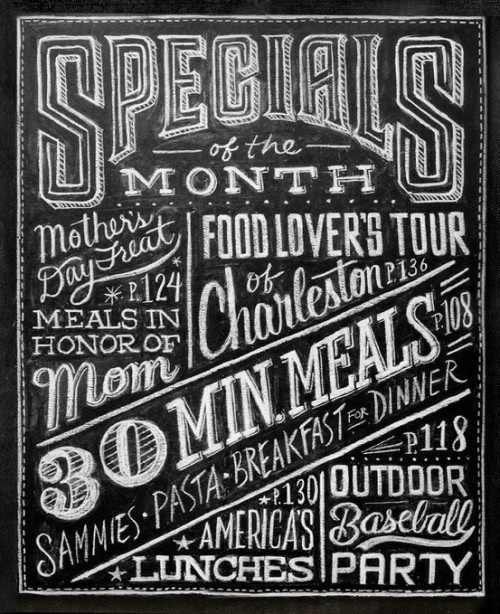 SPECIALS
of the
MONTH
Mother's
Day Treat
P.124
MEALS IN
HONOR OF
Mom
FOOD LOVER'S TOUR
of
Charleston P.136
30 MIN. MEALS P.108
SAMMIES · PASTA · BREAKFAST FOR DINNER
P.130
AMERICA'S
LUNCHES
P.118
OUTDOOR
Baseball
PARTY